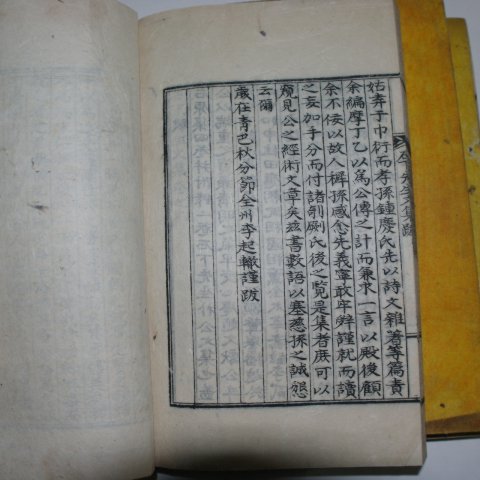 姑弆于巾衍而孝孫鍾慶氏先以詩文雜著等篇責
余編摩丁乙以爲公傳之計而兼求一言以殿後顧
余不佞以故人穉孫感念先義寧敢牢辭謹就而讀
之妄加手分而付諸剞劂氏後之覽是集者庶可以
窺見公之經術文章矣玆書數語以塞慈孫之誠懇
云爾
歲在靑巴秋分節全州李起轍謹跋